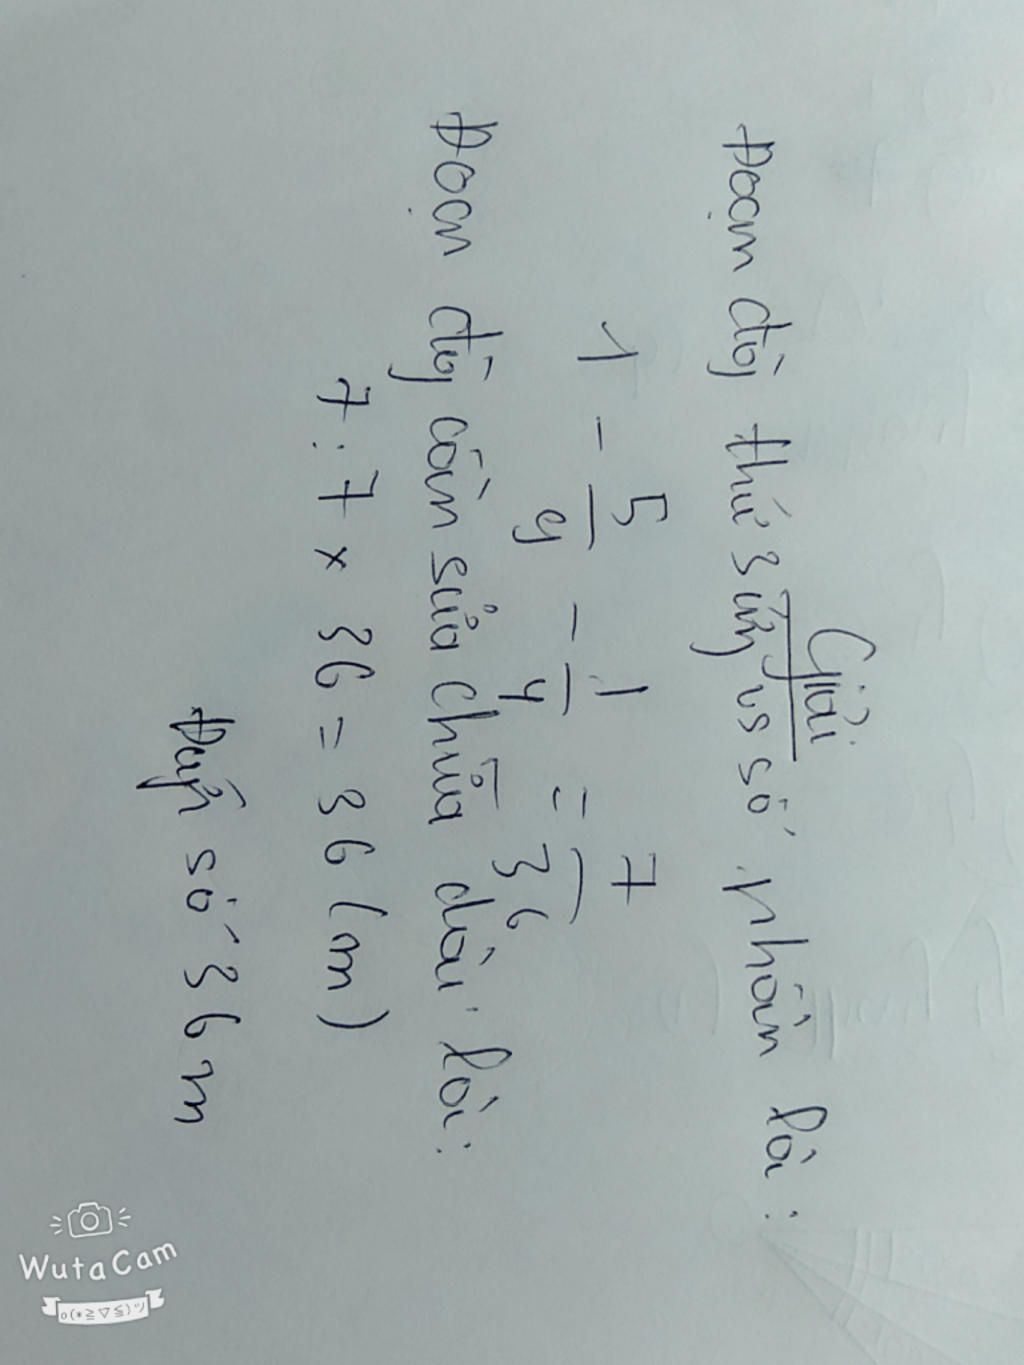 Giải
Đoạn đg thứ 3 ứng vs số phần là :
1 - 5/9 - 1/4 = 7/36
Đoạn đg cần sửa chữa dài là :
7 : 7 x 36 = 36 (m)
Đáp số 36 m
WutaCam
o(*≧▽≦)ツ